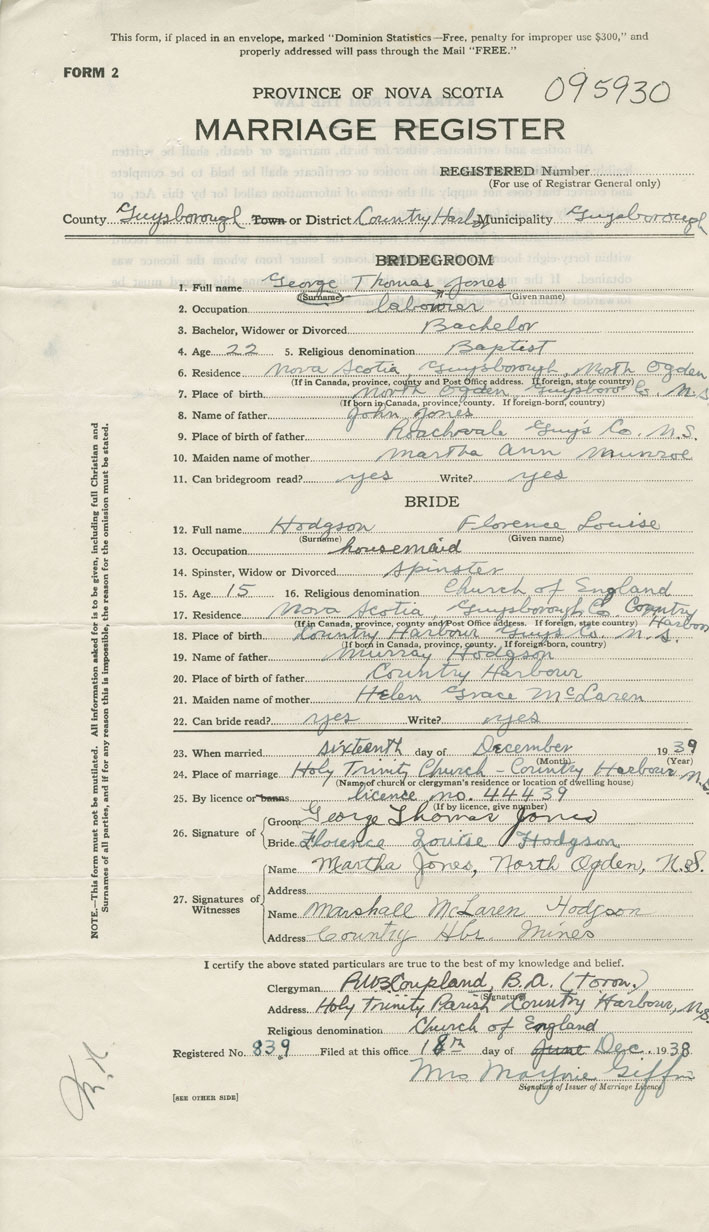 This form, if placed in an envelope, marked "Dominion Statistics—Free, penalty for improper use $300," and
properly addressed will pass through the Mail "FREE."
FORM 2
PROVINCE OF NOVA SCOTIA 095930
MARRIAGE REGISTER
REGISTERED Number
(For use of Registrar General only)
County Guysborough Town or District Country Harbor Municipality Guysborough
BRIDEGROOM
1. Full name George Thomas Jones
(Surname) (Given name)
2. Occupation labourer
3. Bachelor, Widower or Divorced Bachelor
4. Age 22 5. Religious denomination Baptist
6. Residence Nova Scotia, Guysborough, North Ogden
(If in Canada, province, county and Post Office address. If foreign, state country)
7. Place of birth North Ogden Guysboro Co. N.S.
(If born in Canada, province, county. If foreign-born, country)
8. Name of father John Jones
9. Place of birth of father Roachvale Guy's Co. N.S.
10. Maiden name of mother Martha Ann Munroe
11. Can bridegroom read? yes Write? yes
BRIDE
12. Full name Hodgson Florence Louise
(Surname) (Given name)
13. Occupation housemaid
14. Spinster, Widow or Divorced Spinster
15. Age 15 16. Religious denomination Church of England
17. Residence Nova Scotia, Guysborough Co. Country Harbour
(If in Canada, province, county and Post Office address. If foreign, state country)
18. Place of birth Country Harbour Guy's Co. N.S.
(If born in Canada, province, county. If foreign-born, country)
19. Name of father Murray Hodgson
20. Place of birth of father Country Harbour
21. Maiden name of mother Helen Grace McLaren
22. Can bride read? yes Write? yes
23. When married sixteenth day of December 1939
(Month) (Year)
24. Place of marriage Holy Trinity Church - Country Harbour N.S.
(Name of church or clergyman's residence or location of dwelling house)
25. By licence or banns licence no. 44439
(If by licence, give number)
26. Signature of
Groom George Thomas Jones
Bride Florence Louise Hodgson
27. Signatures of Witnesses
Name Martha Jones, North Ogden, N.S.
Address
Name Marshall McLaren Hodgson
Address Country Hbr. Mines
I certify the above stated particulars are true to the best of my knowledge and belief.
Clergyman Coupland, B.A. (Toron.)
(Signature)
Address Holy Trinity Parish Country Harbour, N.S.
Religious denomination Church of England
Registered No. 839 Filed at this office 18th day of June Dec. 1938
Mrs Marjorie Giffin
Signature of Issuer of Marriage Licence
[SEE OTHER SIDE]
NOTE.—This form must not be mutilated. All information asked for is to be given, including full Christian and
Surnames of all parties, and if for any reason this is impossible, the reason for the omission must be stated.